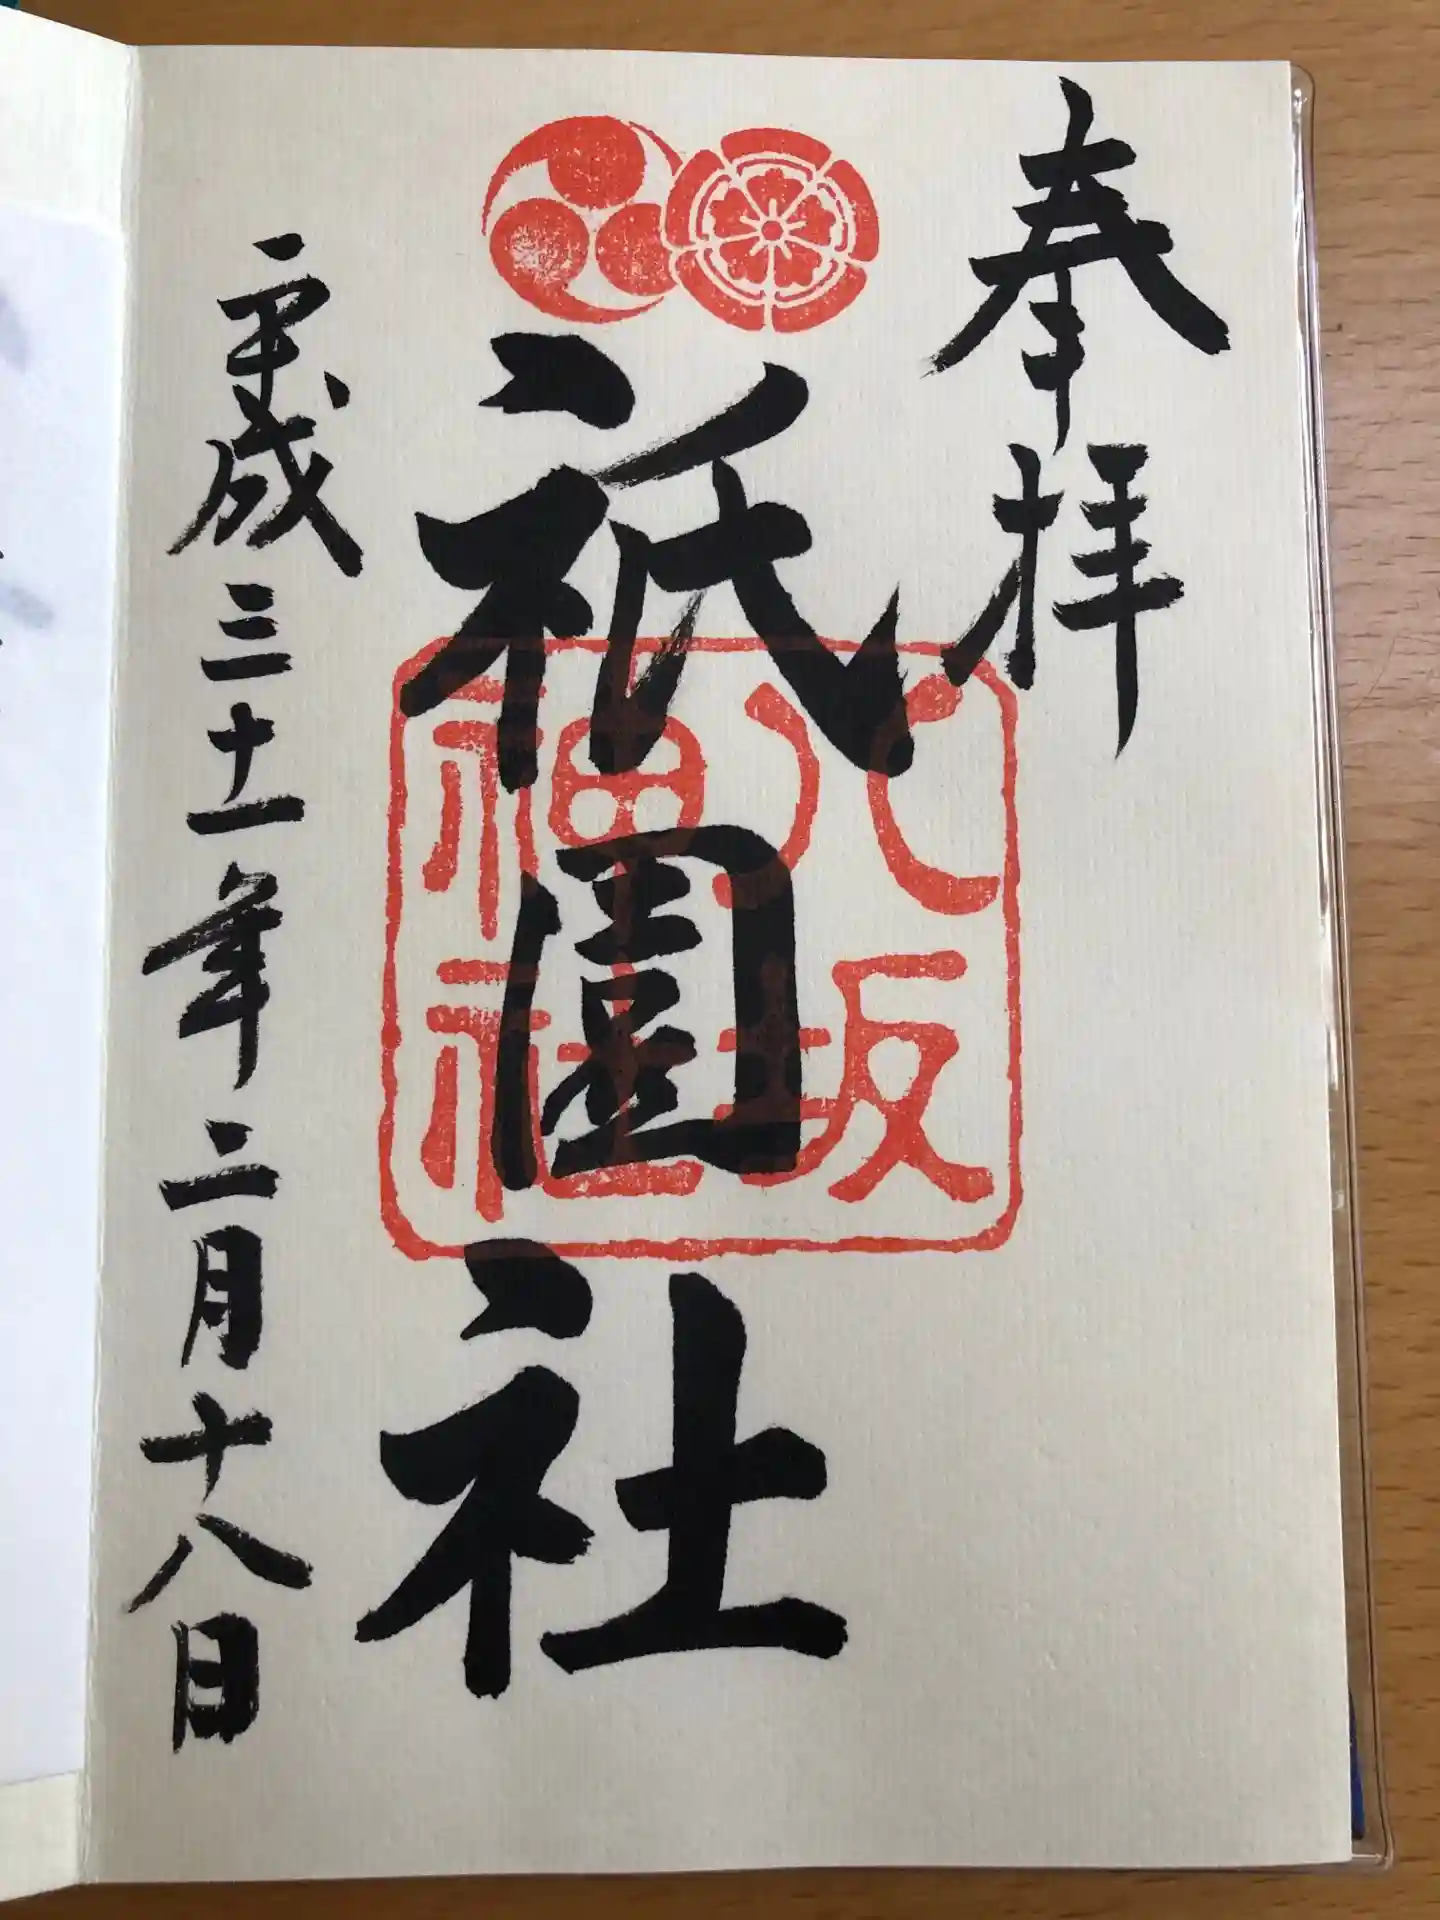 奉拝
祇園社
八坂
神社
平成三十一年二月十八日